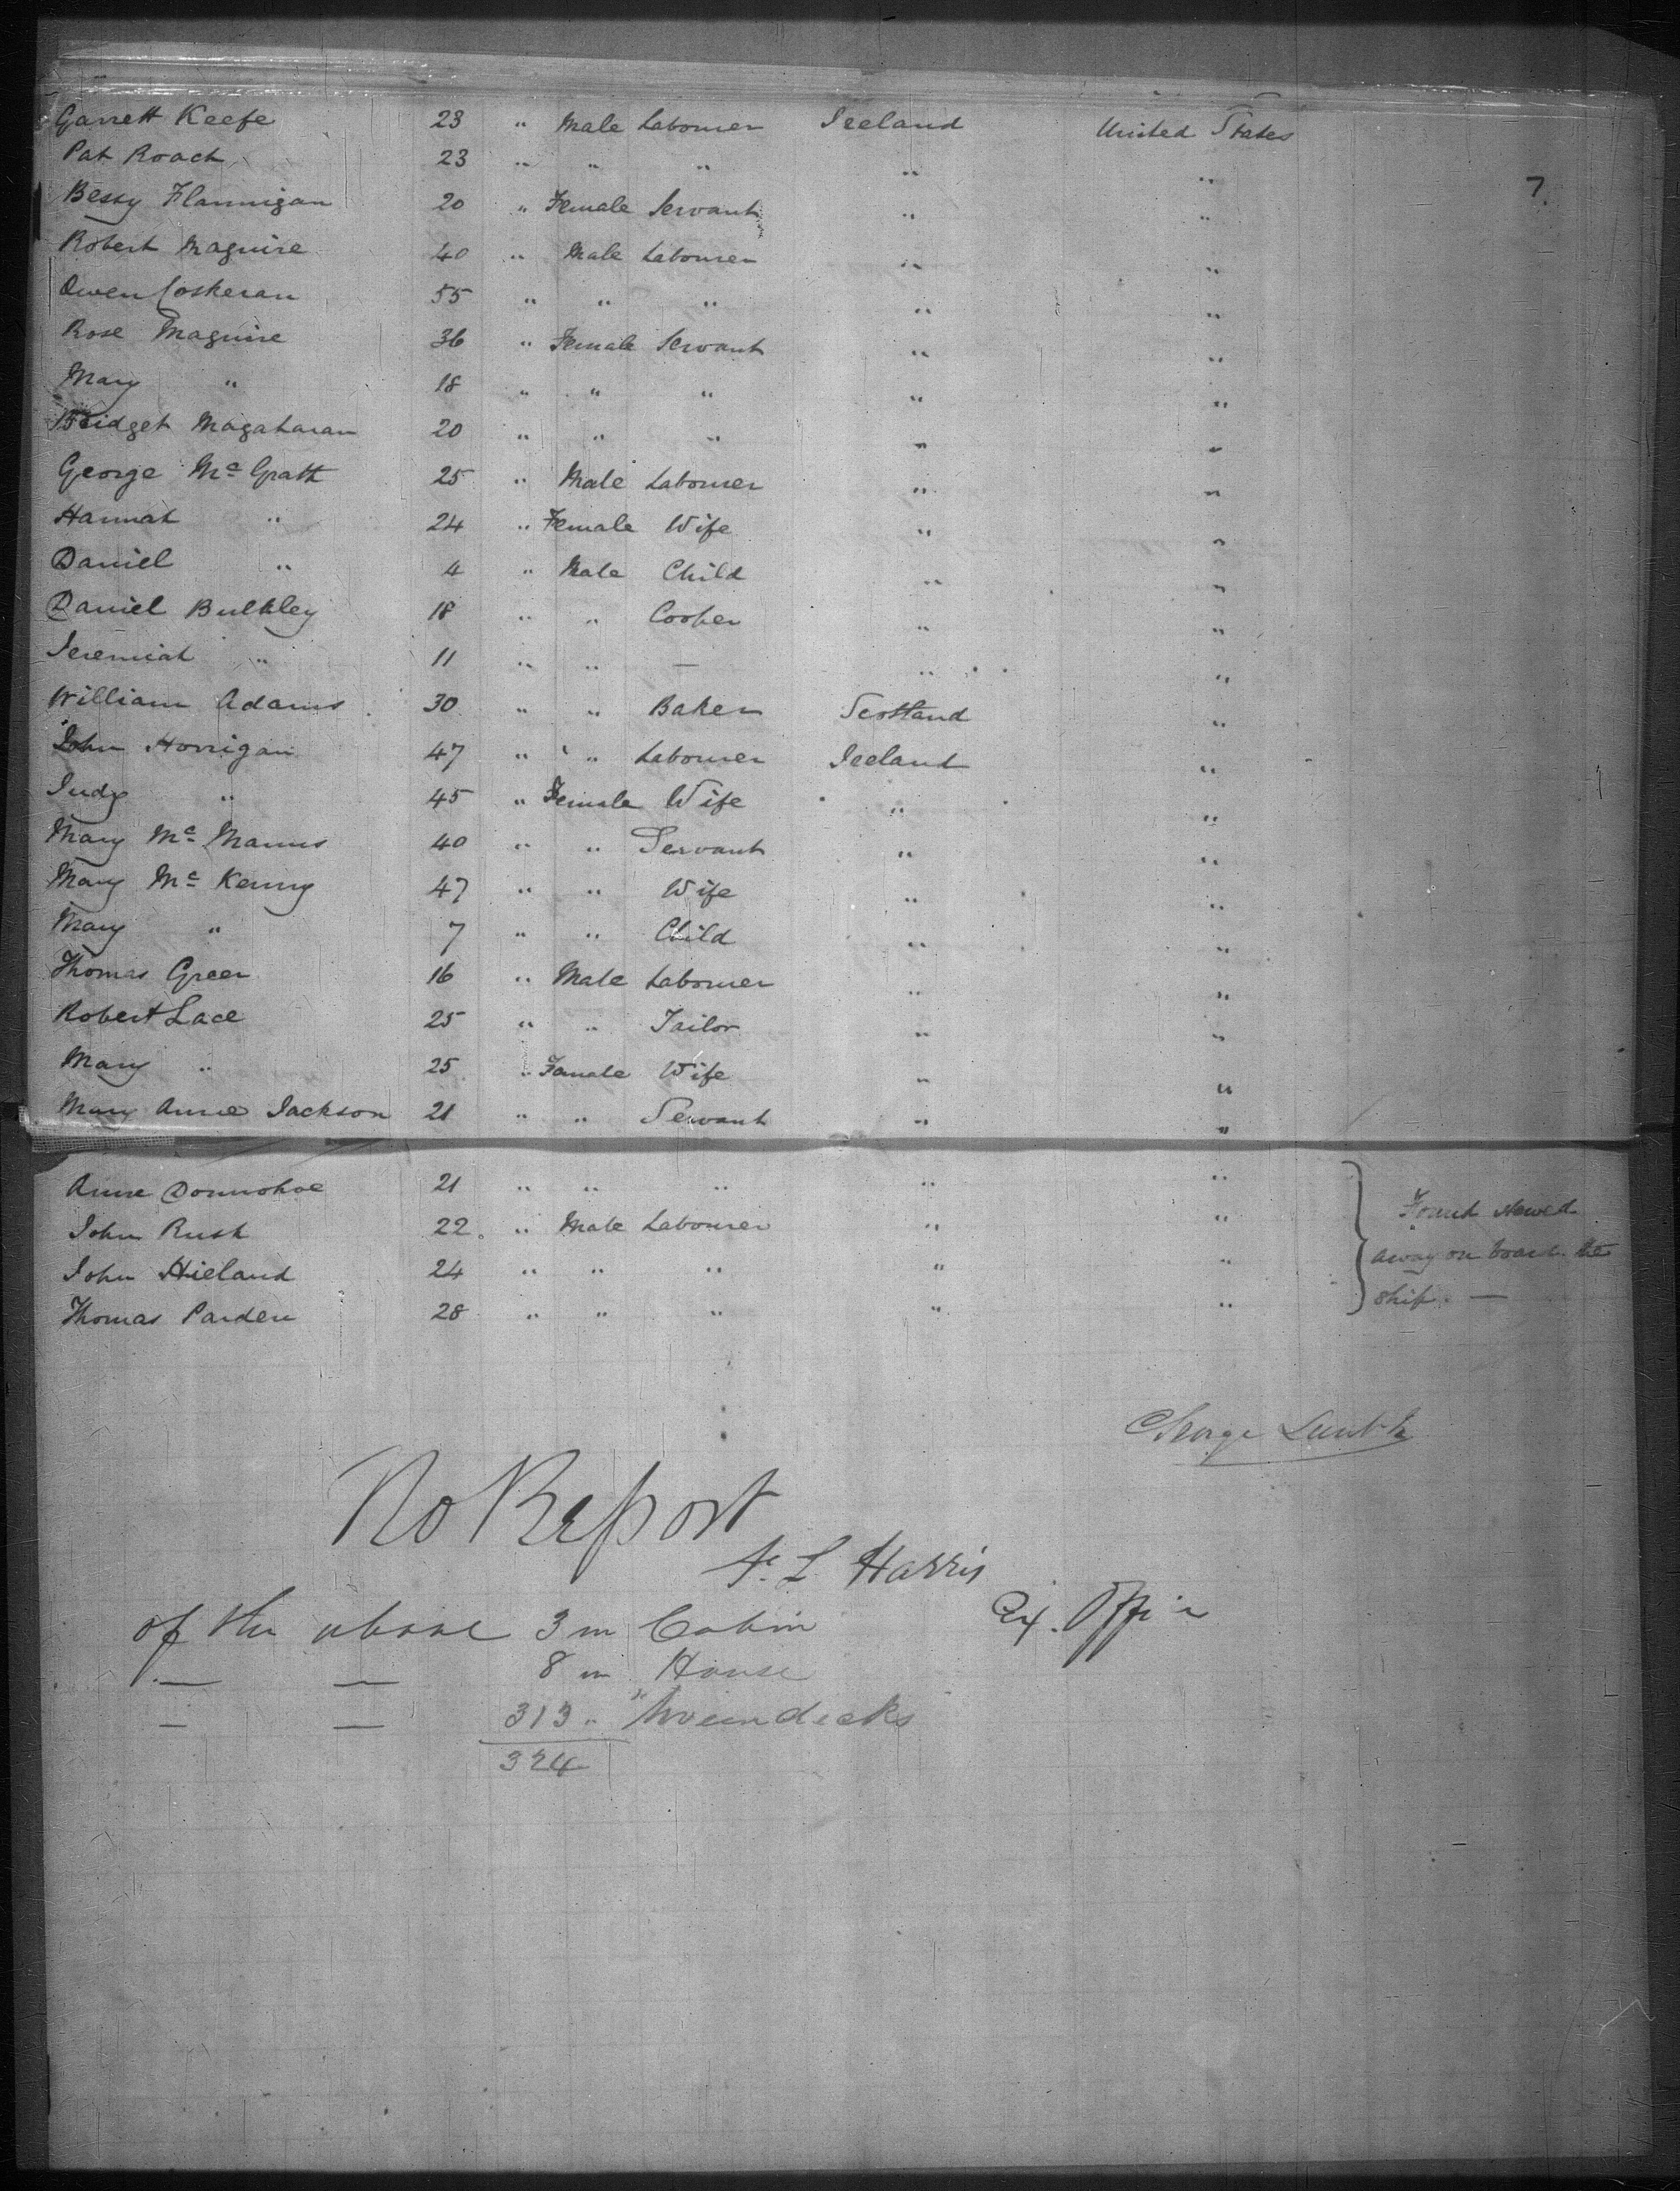 Garrett Keefe 23 " Male Labourer Ireland United States
Pat Roach 23 " " " " "
7
Bessy Flannigan 20 " Female Servant " "
Robert Maguire 40 " Male Labourer " "
Owen Coskeran 55 " " " " "
Rose Maguire 36 " Female Servant " "
Mary " 18 " " " " "
Bridget Magaharan 20 " " " " "
George Mc Grath 25 " Male Labourer " "
Hannah " 24 " Female Wife " "
Daniel " 4 " Male Child " "
Daniel Bulkley 18 " " Cooper " "
Jeremiah " 11 " " — " "
William Adams 30 " " Baker Scotland "
John Horrigan 47 " " Labourer Ireland "
Judy " 45 " Female Wife " "
Mary Mc Manus 40 " " Servant " "
Mary Mc Kenny 47 " " Wife " "
Mary " 7 " " Child " "
Thomas Greer 16 " Male Labourer " "
Robert Lace 25 " " Tailor " "
Mary " 25 " Female Wife " "
Mary Anne Jackson 21 " " Servant " "
Anne Donnohoe 21 " " " " "
John Rush 22 " Male Labourer " " Found stowed
John Hieland 24 " " " " " away on board the
Thomas Parden 28 " " " " " ship. —
George Lunt Jr
No Report
L Harris
of the above 3 in Cabin
— — 8 in House
— — 313 " tweendecks
324